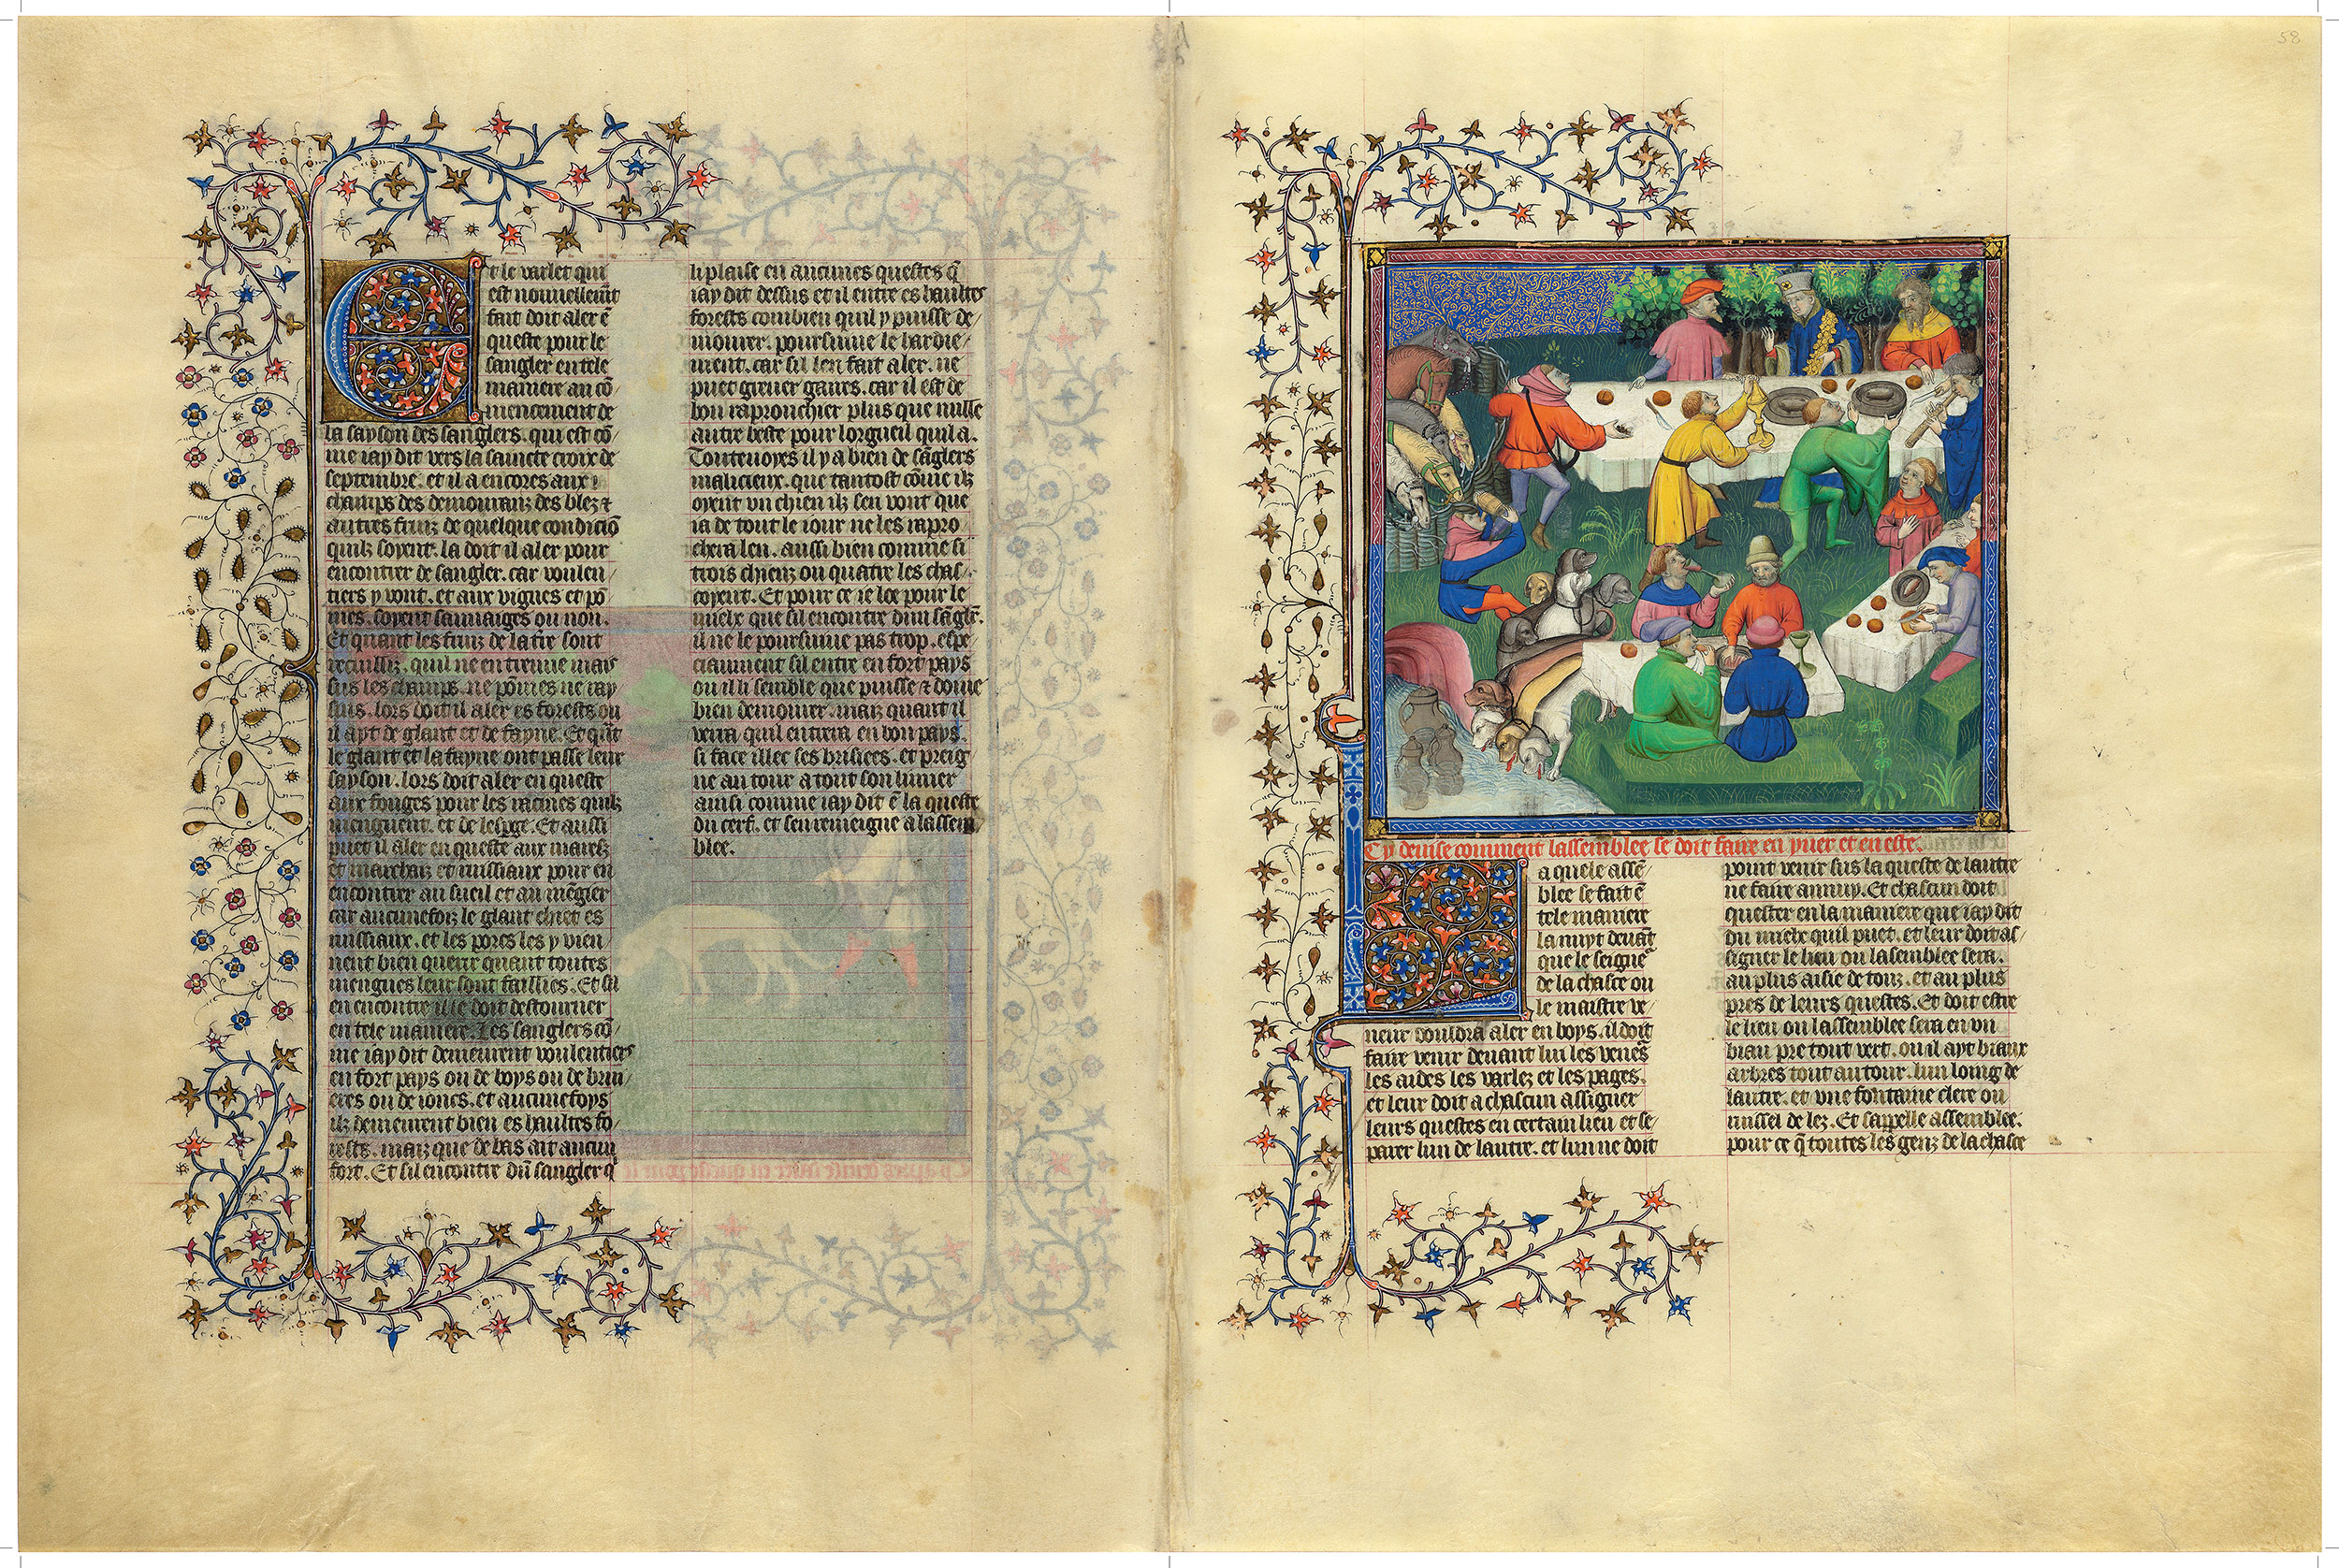 Et le varlet qui
est nouvellemt̄
fait doit aler ē
queste pour le
sangler en tele
maniere au cō
mencement de
la sayson des sanglers. qui est cō
me iay dit vers la saincte croix de
septembre. et il a encores aux
champs des demouranz des blez ⁊
autres fruiz de quelque condiciō
quilz soyent. la doit il aler pour
encontrer de sangler. car voulen
tiers y vont. et aux vignes et pō
mes. soyent sauuaiges ou non.
Et quant les fruiz de la tr̄e sont
recuilliz. quil ne en treuue mais
sus les champs. ne pōmes ne ray
sins. lors doit il aler es forests ou
il ayt de glant et de fayne. Et qūt
le glant et la fayne ont passe leur
sayson. lors doit aler en queste
aux fouges pour les racines quilz
menguent. et de lesp̄ge. Et aussi
puet il aler en queste aux marelz
et marchaiz et ruissiaux pour en
encontrer au sueil et au mēgier
car aucunefoiz le glant chiet es
ruissiaux. et les porcs les y vien
nent bien querir quant toutes
mengues leur sont faillies. Et sil
en encontre ille doit destourner
en tele maniere. Les sanglers cō
me iay dit demeurent voulentiers
en fort pays ou de boys ou de bru
eres ou de ioncs. et aucunefoys
ilz demeurent bien es haultes fo
rests. maiz que de bas ait aucun
fort. Et sil encontre dun̄ sangler q̄
li plaise en aucunes questes q̄
iay dit dessus et il entre es haultes
forests combien quil y puisse de
mourer. poursuiue le hardie
ment. car sil len fait aler. ne
puet greuer gaires. car il est de
bon raprouchier plus que nulle
autre beste pour lorgueil quil a.
Touteuoyes il y a bien de sāglers
malicieux. que tantost cōme ilz
oyent vn chien ilz sen vont que
ia de tout le iour ne les rapro
chera len. aussi bien comme si
trois chienz ou quatre les chas
coyent. Et pour ce ie loe pour le
mielx que sil encontre dun sāglr̄.
il ne le poursuiue pas trop. espe
ciaument sil entre en fort pays
ou il li semble que puisse ⁊ doiue
bien demourer. maiz quant il
verra quil entrera en bon pays.
si face illec ses brisiees. et preig
ne au tour a tout son limier
ainsi comme iay dit ē la queste
du cerf. et sen reueigne a lassem
blee.
58
Cy deuise comment lassemblee se doit faire en yuer et en este.
La quele assē
blee se fait ē
tele maniere
la nuyt deuāt
que le seigne
de la chasce ou
le maistre ve
neur vouldra aler en boys. il doit
faire venir deuant lui les venēs
les aides les varlez et les pages.
et leur doit a chascun assigner
leurs questes en certain lieu et se
parer lun de lautre. et lun ne doit
point venir sus la queste de lautre
ne faire annuy. Et chascun doit
quester en la maniere que iay dit
du mielx quil puet. et leur doit as
signer le lieu ou lasemblee sera.
au plus aisie de touz. et au plus
pres de leurs questes. Et doit estre
le lieu ou lassemblee sera en vn
biau pre tout vert. ou il ayt biaux
arbres tout autour. lun loing de
lautre. et vne fontaine clere ou
ruissel de lez. Et sappelle assemblee.
pour ce q̄ toutes les genz de la chasce